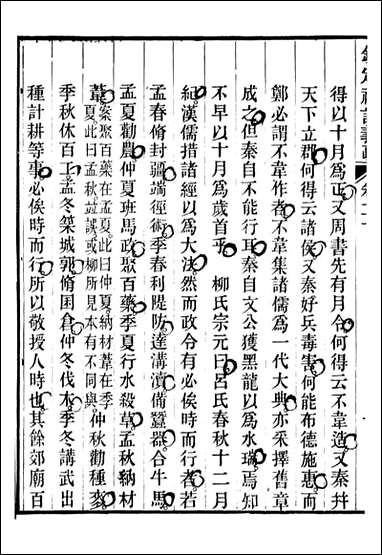 欽定禮記義疏
得以十月爲正又周書先有月令何得云不韋造又秦幷
天下立郡何得云諸侯又秦好兵毒害何能布德施惠而
鄭必謂不韋作者不韋集諸儒爲一代大典亦采擇舊章
成之但秦自不能行耳秦自文公獲黑龍以爲水瑞焉知
不早以十月爲歲首乎 柳氏宗元曰呂氏春秋十二月
紀漢儒措諸經以爲大法然而政令有必俟時而行者若
孟春脩封疆端徑術季春利隄防達溝瀆備蠶器合牛馬
孟夏勸農仲夏班馬政聚百藥季夏行水殺草孟秋納材
葦案聚百藥在孟夏此曰仲夏納材葦在季夏此曰孟秋竝誤或柳所見本有不同與仲秋勸種麥
季秋休百工孟冬築城郭脩囷倉仲冬伐木季冬講武出
種計耕等事必俟時而行所以敬授人時也其餘郊廟百